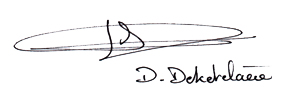 D. Deketelaere